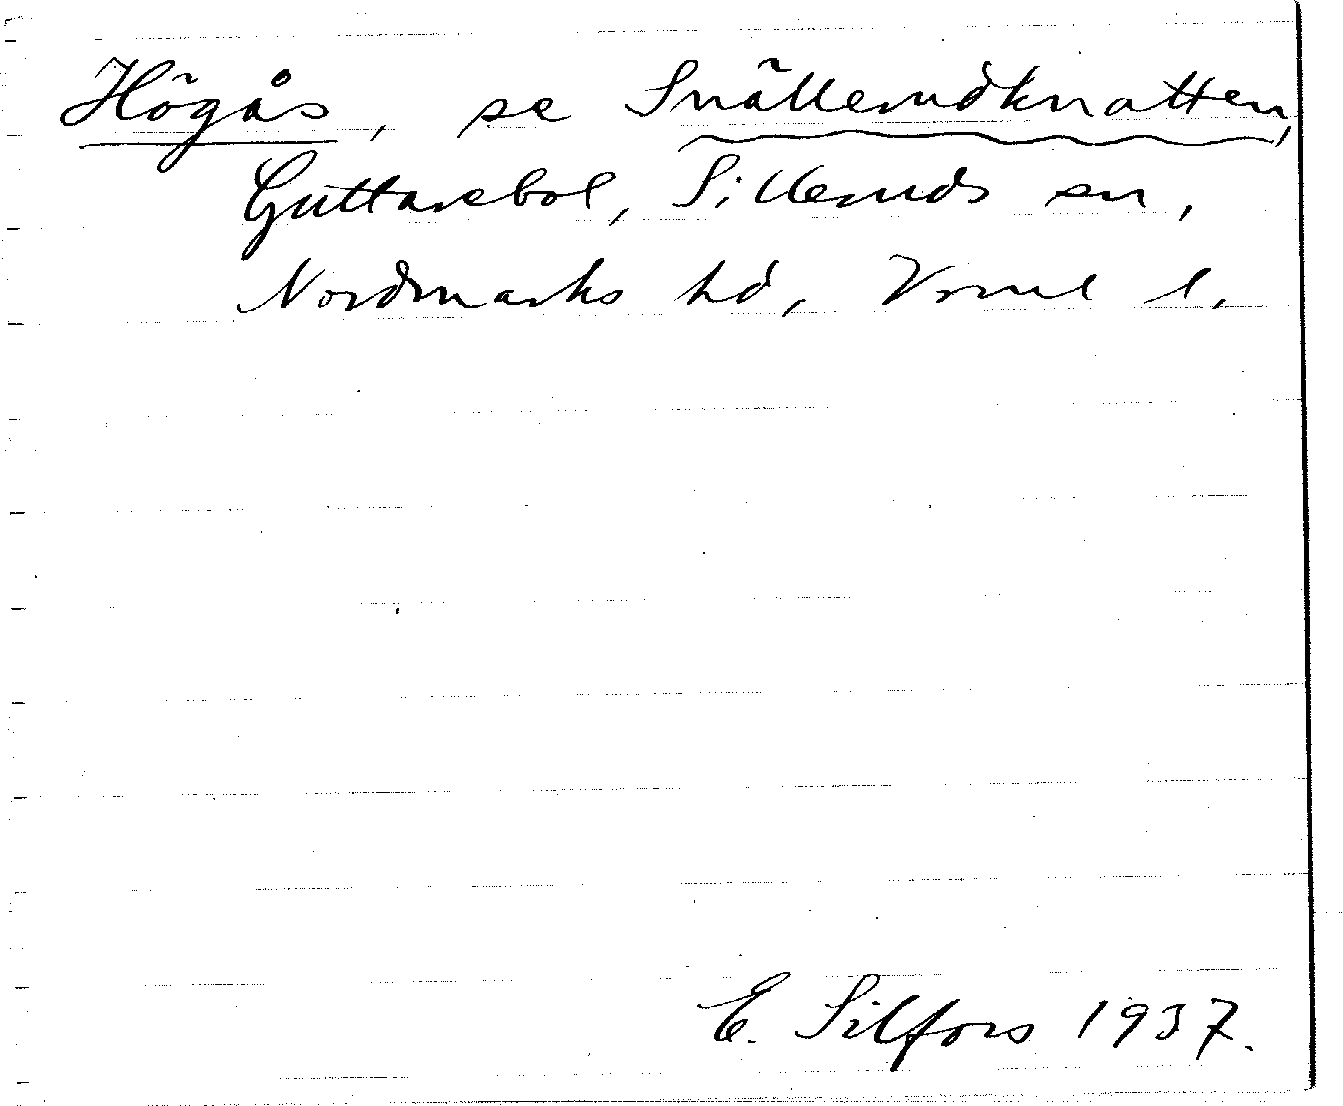 Högås, se Snällerudknatten,
Guttarebol, Silleruds sn,
Nordmarks hd, Vrml l.
E. Silfors 1937.